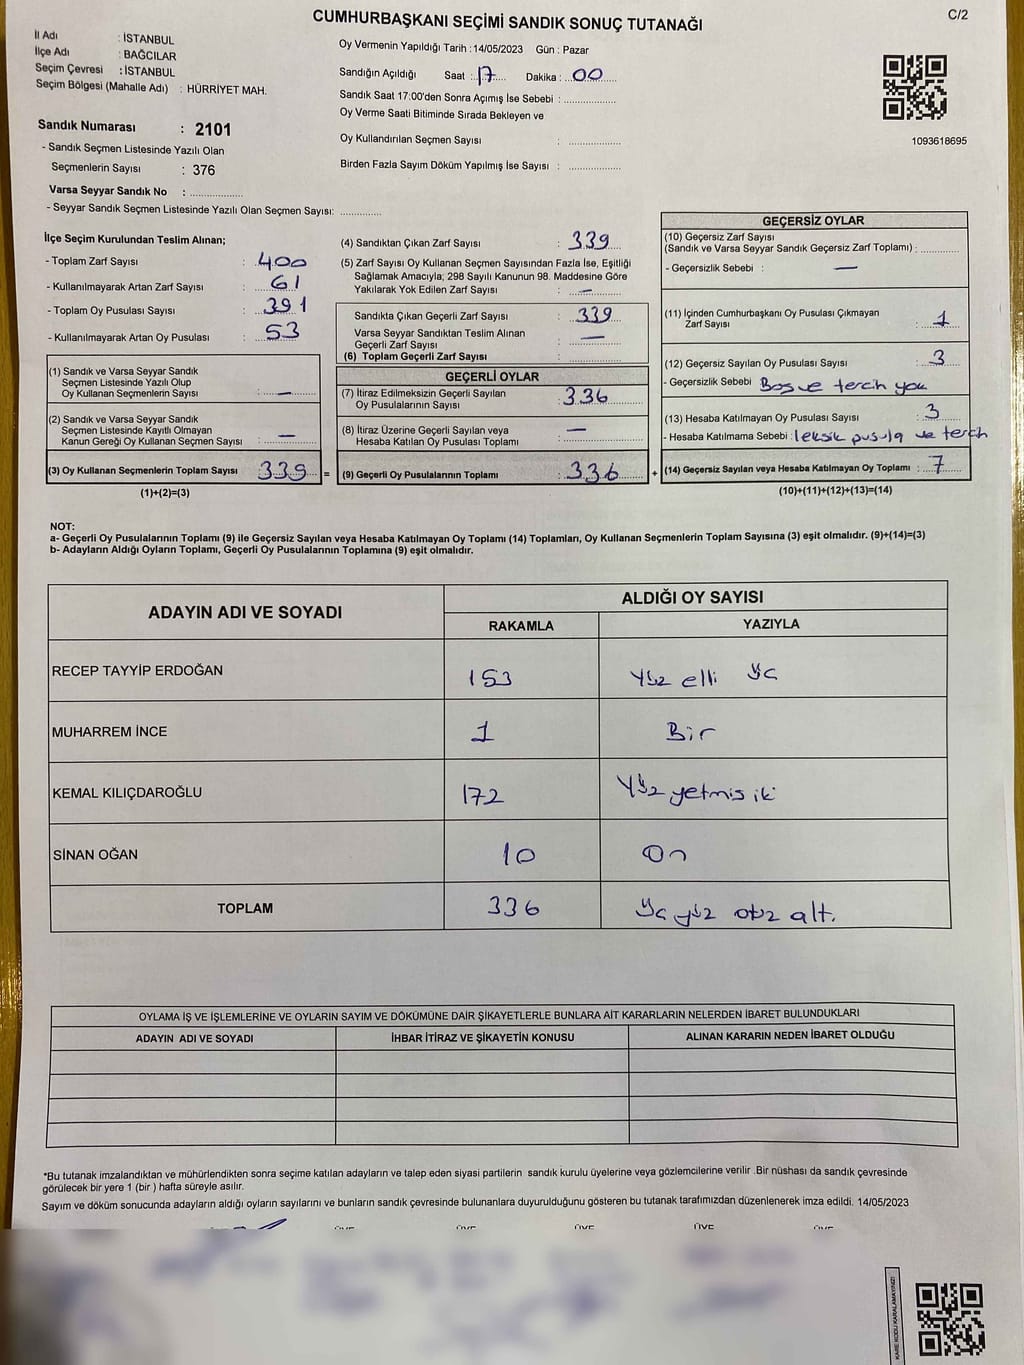 CUMHURBAŞKANI SEÇİMİ SANDIK SONUÇ TUTANAĞI
C/2
İl Adı : İSTANBUL
İlçe Adı : BAĞCILAR
Seçim Çevresi : İSTANBUL
Seçim Bölgesi (Mahalle Adı) : HÜRRİYET MAH.
Sandık Numarası : 2101
- Sandık Seçmen Listesinde Yazılı Olan
Seçmenlerin Sayısı : 376
Varsa Seyyar Sandık No :
- Seyyar Sandık Seçmen Listesinde Yazılı Olan Seçmen Sayısı:
Oy Vermenin Yapıldığı Tarih :14/05/2023 Gün : Pazar
Sandığın Açıldığı Saat : 17 Dakika : 00
Sandık Saat 17:00'den Sonra Açımış İse Sebebi :
Oy Verme Saati Bitiminde Sırada Bekleyen ve
Oy Kullandırılan Seçmen Sayısı :
Birden Fazla Sayım Döküm Yapılmış İse Sayısı :
1093618695
İlçe Seçim Kurulundan Teslim Alınan;
- Toplam Zarf Sayısı : 400
- Kullanılmayarak Artan Zarf Sayısı : 61
- Toplam Oy Pusulası Sayısı : 391
- Kullanılmayarak Artan Oy Pusulası : 53
(1) Sandık ve Varsa Seyyar Sandık
Seçmen Listesinde Yazılı Olup
Oy Kullanan Seçmenlerin Sayısı : —
(2) Sandık ve Varsa Seyyar Sandık
Seçmen Listesinde Kayıtlı Olmayan
Kanun Gereği Oy Kullanan Seçmen Sayısı : —
(3) Oy Kullanan Seçmenlerin Toplam Sayısı 339 =
(1)+(2)=(3)
(4) Sandıktan Çıkan Zarf Sayısı : 339
(5) Zarf Sayısı Oy Kullanan Seçmen Sayısından Fazla İse, Eşitliği
Sağlamak Amacıyla; 298 Sayılı Kanunun 98. Maddesine Göre
Yakılarak Yok Edilen Zarf Sayısı : —
Sandıkta Çıkan Geçerli Zarf Sayısı : 339
Varsa Seyyar Sandıktan Teslim Alınan
Geçerli Zarf Sayısı : —
(6) Toplam Geçerli Zarf Sayısı :
GEÇERLİ OYLAR
(7) İtiraz Edilmeksizin Geçerli Sayılan
Oy Pusulalarının Sayısı : 336
(8) İtiraz Üzerine Geçerli Sayılan veya
Hesaba Katılan Oy Pusulası Toplamı : —
(9) Geçerli Oy Pusulalarının Toplamı : 336 +
GEÇERSİZ OYLAR
(10) Geçersiz Zarf Sayısı
(Sandık ve Varsa Seyyar Sandık Geçersiz Zarf Toplamı) :
- Geçersizlik Sebebi : —
(11) İçinden Cumhurbaşkanı Oy Pusulası Çıkmayan
Zarf Sayısı : 1
(12) Geçersiz Sayılan Oy Pusulası Sayısı : 3
- Geçersizlik Sebebi Boş ve tercih yok
(13) Hesaba Katılmayan Oy Pusulası Sayısı : 3
- Hesaba Katılmama Sebebi : leksik pusula ve terch
(14) Geçersiz Sayılan veya Hesaba Katılmayan Oy Toplamı : 7
(10)+(11)+(12)+(13)=(14)
NOT:
a- Geçerli Oy Pusulalarının Toplamı (9) ile Geçersiz Sayılan veya Hesaba Katılmayan Oy Toplamı (14) Toplamları, Oy Kullanan Seçmenlerin Toplam Sayısına (3) eşit olmalıdır. (9)+(14)=(3)
b- Adayların Aldığı Oyların Toplamı, Geçerli Oy Pusulalarının Toplamına (9) eşit olmalıdır.
ADAYIN ADI VE SOYADI ALDIĞI OY SAYISI
RAKAMLA YAZIYLA
RECEP TAYYİP ERDOĞAN 153 Yüz elli üç
MUHARREM İNCE 1 Bir
KEMAL KILIÇDAROĞLU 172 Yüz yetmis iki
SİNAN OĞAN 10 On
TOPLAM 336 Üç yüz otuz altı
OYLAMA İŞ VE İŞLEMLERİNE VE OYLARIN SAYIM VE DÖKÜMÜNE DAİR ŞİKAYETLERLE BUNLARA AİT KARARLARIN NELERDEN İBARET BULUNDUKLARI
ADAYIN ADI VE SOYADI İHBAR İTİRAZ VE ŞİKAYETİN KONUSU ALINAN KARARIN NEDEN İBARET OLDUĞU
*Bu tutanak imzalandıktan ve mühürlendikten sonra seçime katılan adayların ve talep eden siyasi partilerin sandık kurulu üyelerine veya gözlemcilerine verilir .Bir nüshası da sandık çevresinde
görülecek bir yere 1 (bir ) hafta süreyle asılır.
Sayım ve döküm sonucunda adayların aldığı oyların sayılarını ve bunların sandık çevresinde bulunanlara duyurulduğunu gösteren bu tutanak tarafımızdan düzenlenerek imza edildi. 14/05/2023
ÜYE ÜYE ÜYE ÜYE ÜYE
KARE KODU KARALAMAYINIZ!